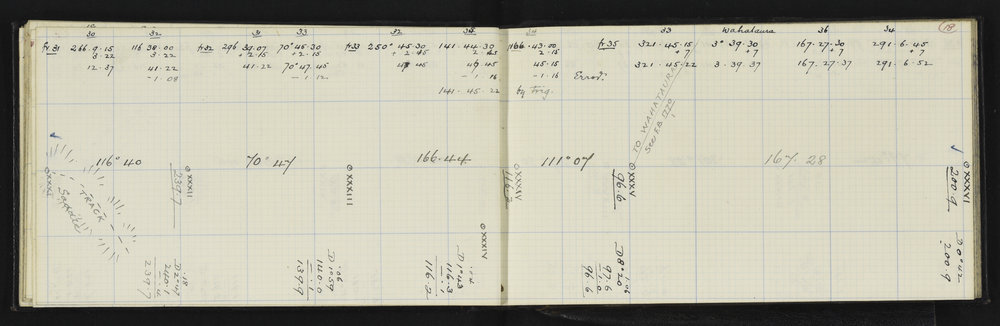 30 32 31 33 32 34 33 Wahataura 36 34 18
fr 31 266.9.15 116 38.00 fr 32 296 39.07 70° 45.30 fr 33 250° 45.30 141.44.30 166.43.00 fr 35 321.45.15 3° 39.30 167.27.30 291.6.45
3.22 3.22 + 2.15 + 2.15 2.45 2 45 2.15 + 7 + 7 + 7
12.37 41.22 41.22 70° 47 45 45 45.15 321.45.22 3.39.37 167.27.37 291.6.52
- 1.08 - 1.12 - 1.16 - 1.16 Error.
141.45.22 by trig.
TO WAHATAURA
See F.B. 1770
116° 40 70° 47 166.44 111° 07 167.28
TRACK
Saddle
⊙XXXI
⊙XXXII
239.7
⊙XXXIII
⊙XXXIV
⊙XXXIV
116.2
⊙XXXV
96.6
⊙XXXVI
200.9
.18
D 2°47
240.1
239.7
.06
D 1°39
140.0
.1
139.9
D 1°43
116.3
116.2
1.06
D 8°20
97.6
1.0
96.6
D 0°42
200.9